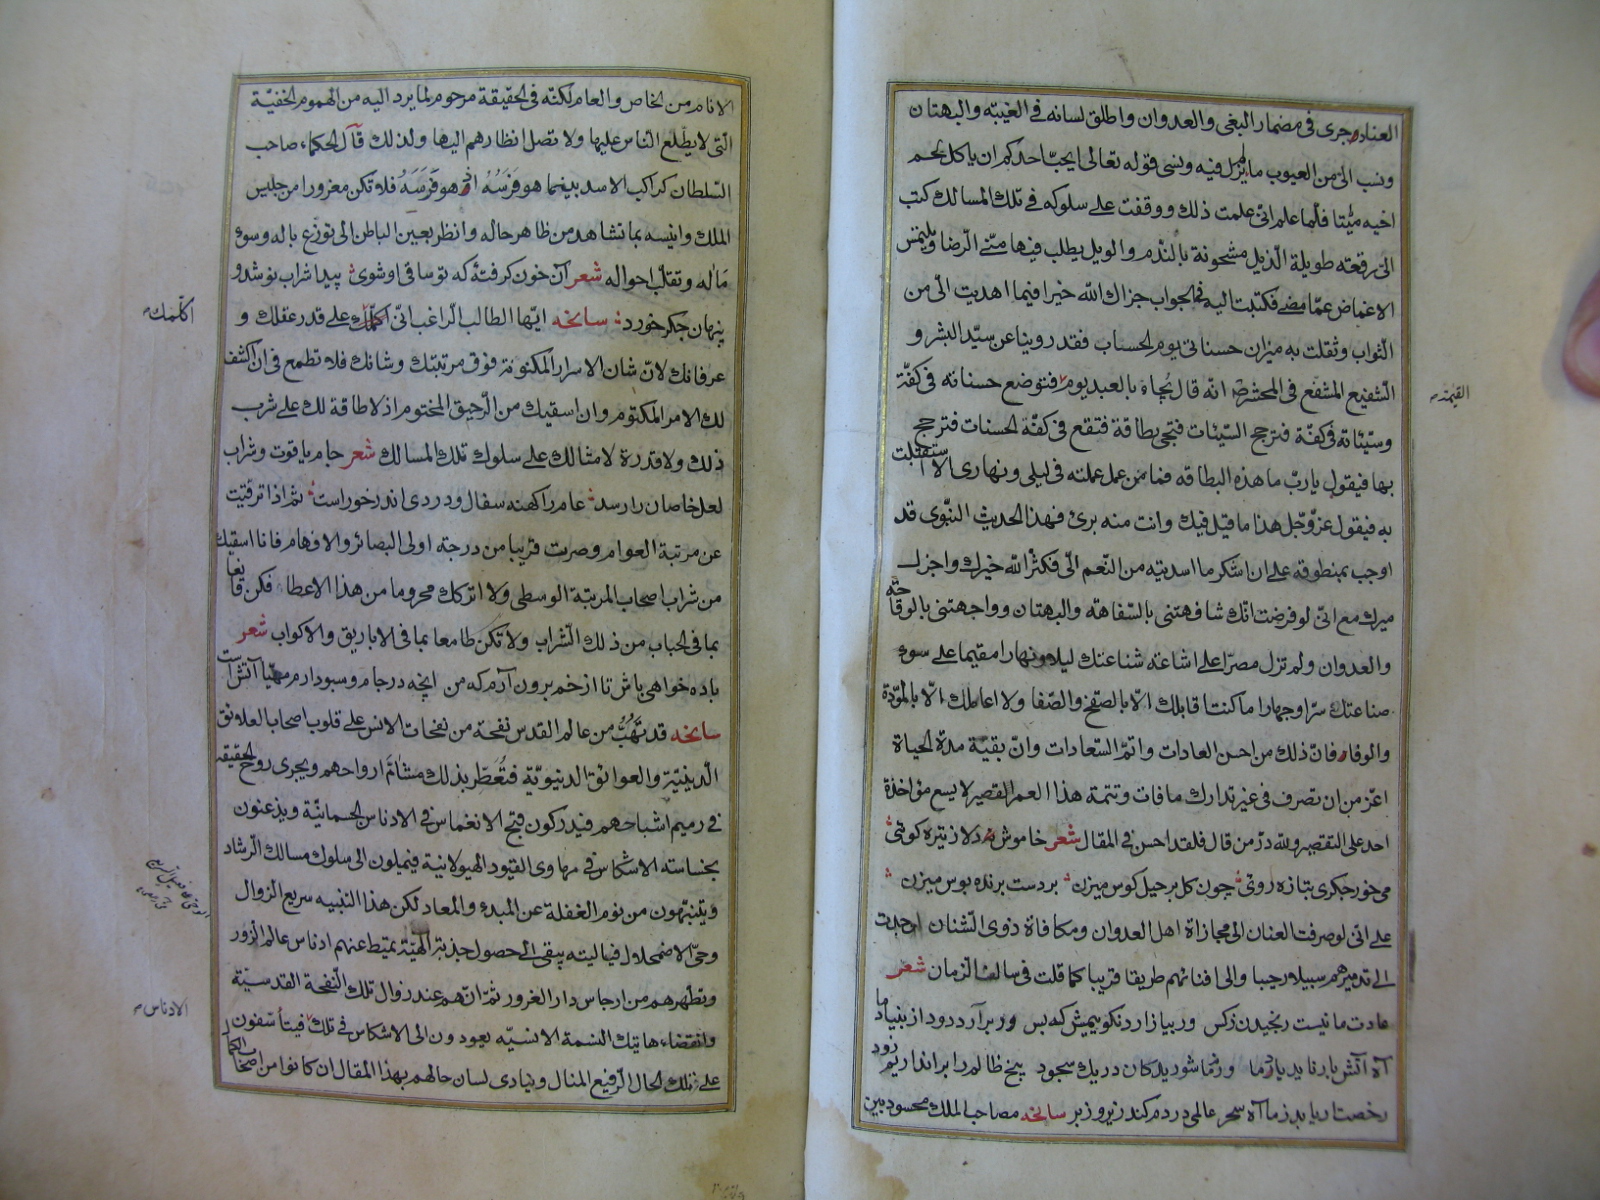 العناد وجرى فى مضمار البغى والعدوان واطلق لسانه فى الغيبته والبهتان
ونسب الىّ من العيوب ما لم ازل فيه ونسى قوله تعالى ايحبّ احدكم ان ياكل لحم
اخيه ميّتا فلما علم انى علمت ذلك ووقفت على سلوكه فى تلك المسالك كتب
الى رقعته طويلة الذيل مشحونة بالندم والويل يطلب فيها منّى الرضا ويلتمس
الاغماض عمّا مضى فكتبت اليه فى الجواب جزاك الله خيرا فيما اهديت الىّ من
الثواب وثقلت به ميزان حسناتى يوم الحساب فقد روينا عن سيّد البشر و
الشفيع المشفع فى المحشر صلى انه قال يجاء بالعبد يوم فتوضع حسناته فى كفّة
القيمة صح
وسيّئاته فى كفّة فترجح السيّئات فتجئ بطاقة فتقع فى كفّة الحسنات فترجح
بها فيقول يا ربّ ما هذه البطاقه فما من عمل عملته فى ليلى ونهارى الا استقبلت
به فيقول عزّ وجّل هذا ما قيل فيك وانت منه برئ فهذا الحديث النبّوى قد
اوجب بمنطوقه على ان اشكر ما اسديته من النّعم الىّ فكثر الله خيرك واجزل
ميرك مع انى لو فرضت انّك شافهتنى بالسّفاهة والبهتان وواجهتنى بالوقاحة
والعدوان ولم تزل مصرّا على اشاعته شناعتك ليلا ونهارا مقيما على سوء
صناعتك سرّا وجهارا ما كنت اقابلك الّا بالصّفح والصّفا ولا اعاملك الّا بالمودّة
والوفاء فانّ ذلك من احسن العادات واتمّ السّعادات وانّ بقيّة مدّة الحياة
اعزّ من ان تصرف فى غير تدارك ما فات وتتمة هذا العمر القصير لا يسع مؤاخذة
احد على التقصير ولله درّ من قال فلقد احسن فى المقال شعر خاموش دلا ز تيره كوئى
مى خور جكرى بتازه روئى چون كل برحيل كوس ميزن بر دست برنده بوس ميزن
على انى لو صرفت العنان الى مجازاة اهل العدوان ومكافاة ذوى الشنان لوجدت
الى تدميرهم سبيلا رحيبا والى افنائهم طريقا قريبا كما قلت فى سالف الزمان شعر
عادت ما نيست رنجيدن ز كس ور بيازارد نكوييمش كه بس ور برآرد دود از بنياد ما
آه آتش بار نايد ياد ما ورنه ما شوريدكان در يك سجود بيخ ظالم را براندازيم زود
رخصت ار يابد ز ما آه سحر عالمى در دم كند زير وزبر سانحه مصاحب الملك محسود بين
الانام من الخاص والعام لكنّه فى الحقيقة مرحوم لما يرد اليه من الهموم الخفيّة
الّتى لا يطّلع النّاس عليها ولا تصل انظارهم اليها ولذلك قال الحكماء صاحب
السّلطان كراكب الاسد بينما هو فرسه اذ هو فَرَسَهُ فلا تكن مغرورا من جليس
الملك وانيسه بما تشاهد من ظاهر حاله وانظر بعين الباطن الى توزع باله وسوء
مآله وتقلّب احواله شعر آن خون كرفته كه تو ساقى اوشوى پيدا شراب نوشد و
پنهان جكر خورد سانحه ايّها الطالب الراغب انّى اكلّمك على قدر عقلك و
اكلّمك صح
عرفانك لانّ شان الاسرار المكنونة فوق مرتبتك وشانك فلا تطمع فى ان اكشف
لك الامر المكتوم وان اسقيك من الرّحيق المختوم اذ لا طاقة لك على شرب
ذلك ولا قدرة لامثالك على سلوك تلك المسالك شعر جام ياقوت وشراب
لعل خاصان را رسد عام را كهنه سفال ودردى اندر خوراست ثمّ اذا ترقيت
عن مرتبة العوام وصرت قريبا من درجته اولى البصائر والافهام فانا اسقيك
من شراب اصحاب المرتبّة الوسطى ولا اتركك محروما من هذا الاعطا فكن قانعا
بما فى الحباب من ذلك الشراب ولا تكن طامعا بما فى الاباريق والاكواب شعر
باده خواهى باش تا از خم برون آرم كه من انچه در جام وسبو دارم مهيّا آتش است
سانحه قد تهُبُّ من عالم القدس نفحة من نفحات الانس على قلوب اصحاب العلائق
الدّينيّة والعوائق الدنيويّة فتُعطّر بذلك مشامّ ارواحهم ويجرى روح الحقيقة
فى رميم اشباحهم فيدركون قبح الانغماس فى الادناس الجسمانيّة ويذعنون
بخساسته الانتكاس فى مهاوى القيود الهيولانية فيميلون الى سلوك مسالك الرّشاد
ويتنبّهون من نوم الغفلة عن المبدء والمعاد لكن هذا التنبيه سريع الزوال
وحىّ الاضمحلال فياليته يبقى الى حصول جذبة الهيّة تميط عنهم ادناس عالم الزور
وتطهرهم من ارجاس دار الغرور ثمّ انّهم عند زوال تلك النّفحة القدسيّة
وانقضاء هاتيك النسمة الانسيّه يعودون الى الانتكاس فى تلك فيتأسّفون
الادناس صح
على تلك الحال الرفيع المنال وينادى لسان حالهم بهذا المقال ان كانوا من اصحاب الكمال